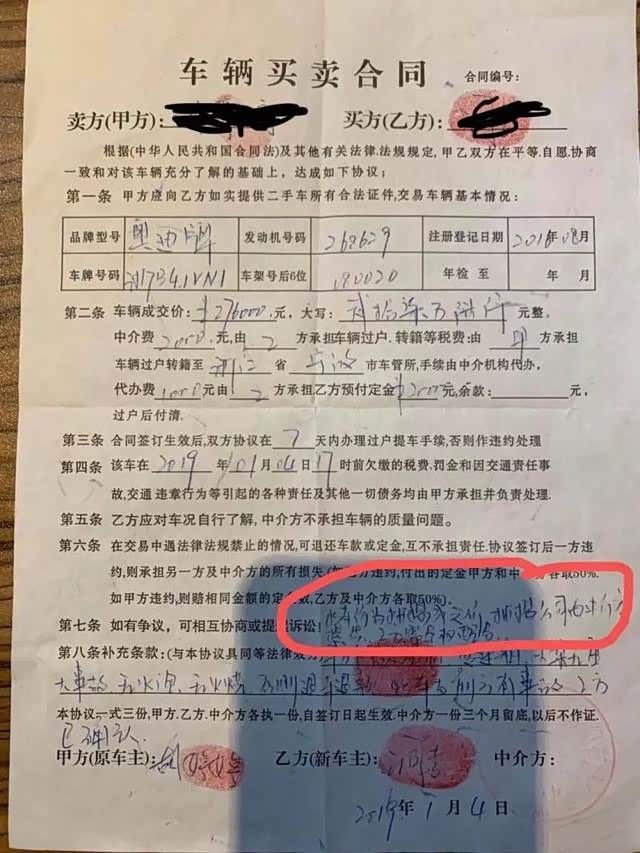 车辆买卖合同 合同编号:
卖方(甲方): 买方(乙方):
根据(中华人民共和国合同法)及其他有关法律.法规规定, 甲乙双方在平等.自愿.协商
一致和对该车辆充分了解的基础上，达成如下协议;
第一条 甲方应向乙方如实提供二手车所有合法证件,交易车辆基本情况：
品牌型号 奥迪牌 发动机号码 269629 注册登记日期 2016年08月
车牌号码 车架号后6位 080020 年检 至 年 月
第二条 车辆成交价: 276000 元，大写: 元整。
中介费 2000 元,由 乙 方承担车辆过户. 转籍等税费:由 甲 方承担
车辆过户转籍至 浙江 省 宁波 市车管所,手续由中介机构代办,
代办费 1000 元由 乙 方承担乙方预付定金 元,余款: 元,
过户后付清.
第三条 合同签订生效后,双方协议在 7 天内办理过户提车手续,否则作违约处理
第四条 该车在 2019 年 01 月 04 日 17 时前欠缴的税费.罚金和因交通责任事
故,交通 违章行为等引起的各种责任及其他一切债务均由甲方承担并负责处理.
第五条 乙方应对车况自行了解,中介方不承担车辆的质量问题。
第六条 在交易中遇法律法规禁止的情况,可退还车款或定金,互不承担责任.协议签订后一方违
约,则承担另一方及中介方的所有损失.(如乙方违约,付出的定金甲方和中 各取50%.
如甲方违约,则赔相同金额的定 数,乙方及中介方各取50%)。
第七条 如有争议,可相互协商或提 诉讼!
第八条补充条款:(与本协议具同等法律效
大事故 无火烧 否则退车退款 此车 前方有事故 乙方
本协议一式三份,甲方.乙方.中介方各执一份,自签订日起生效.中介方一份三个月留底,以后不作证.
已确认.
甲方(原车主): 乙方(新车主): 中介方:
2019年 1 月 4 日